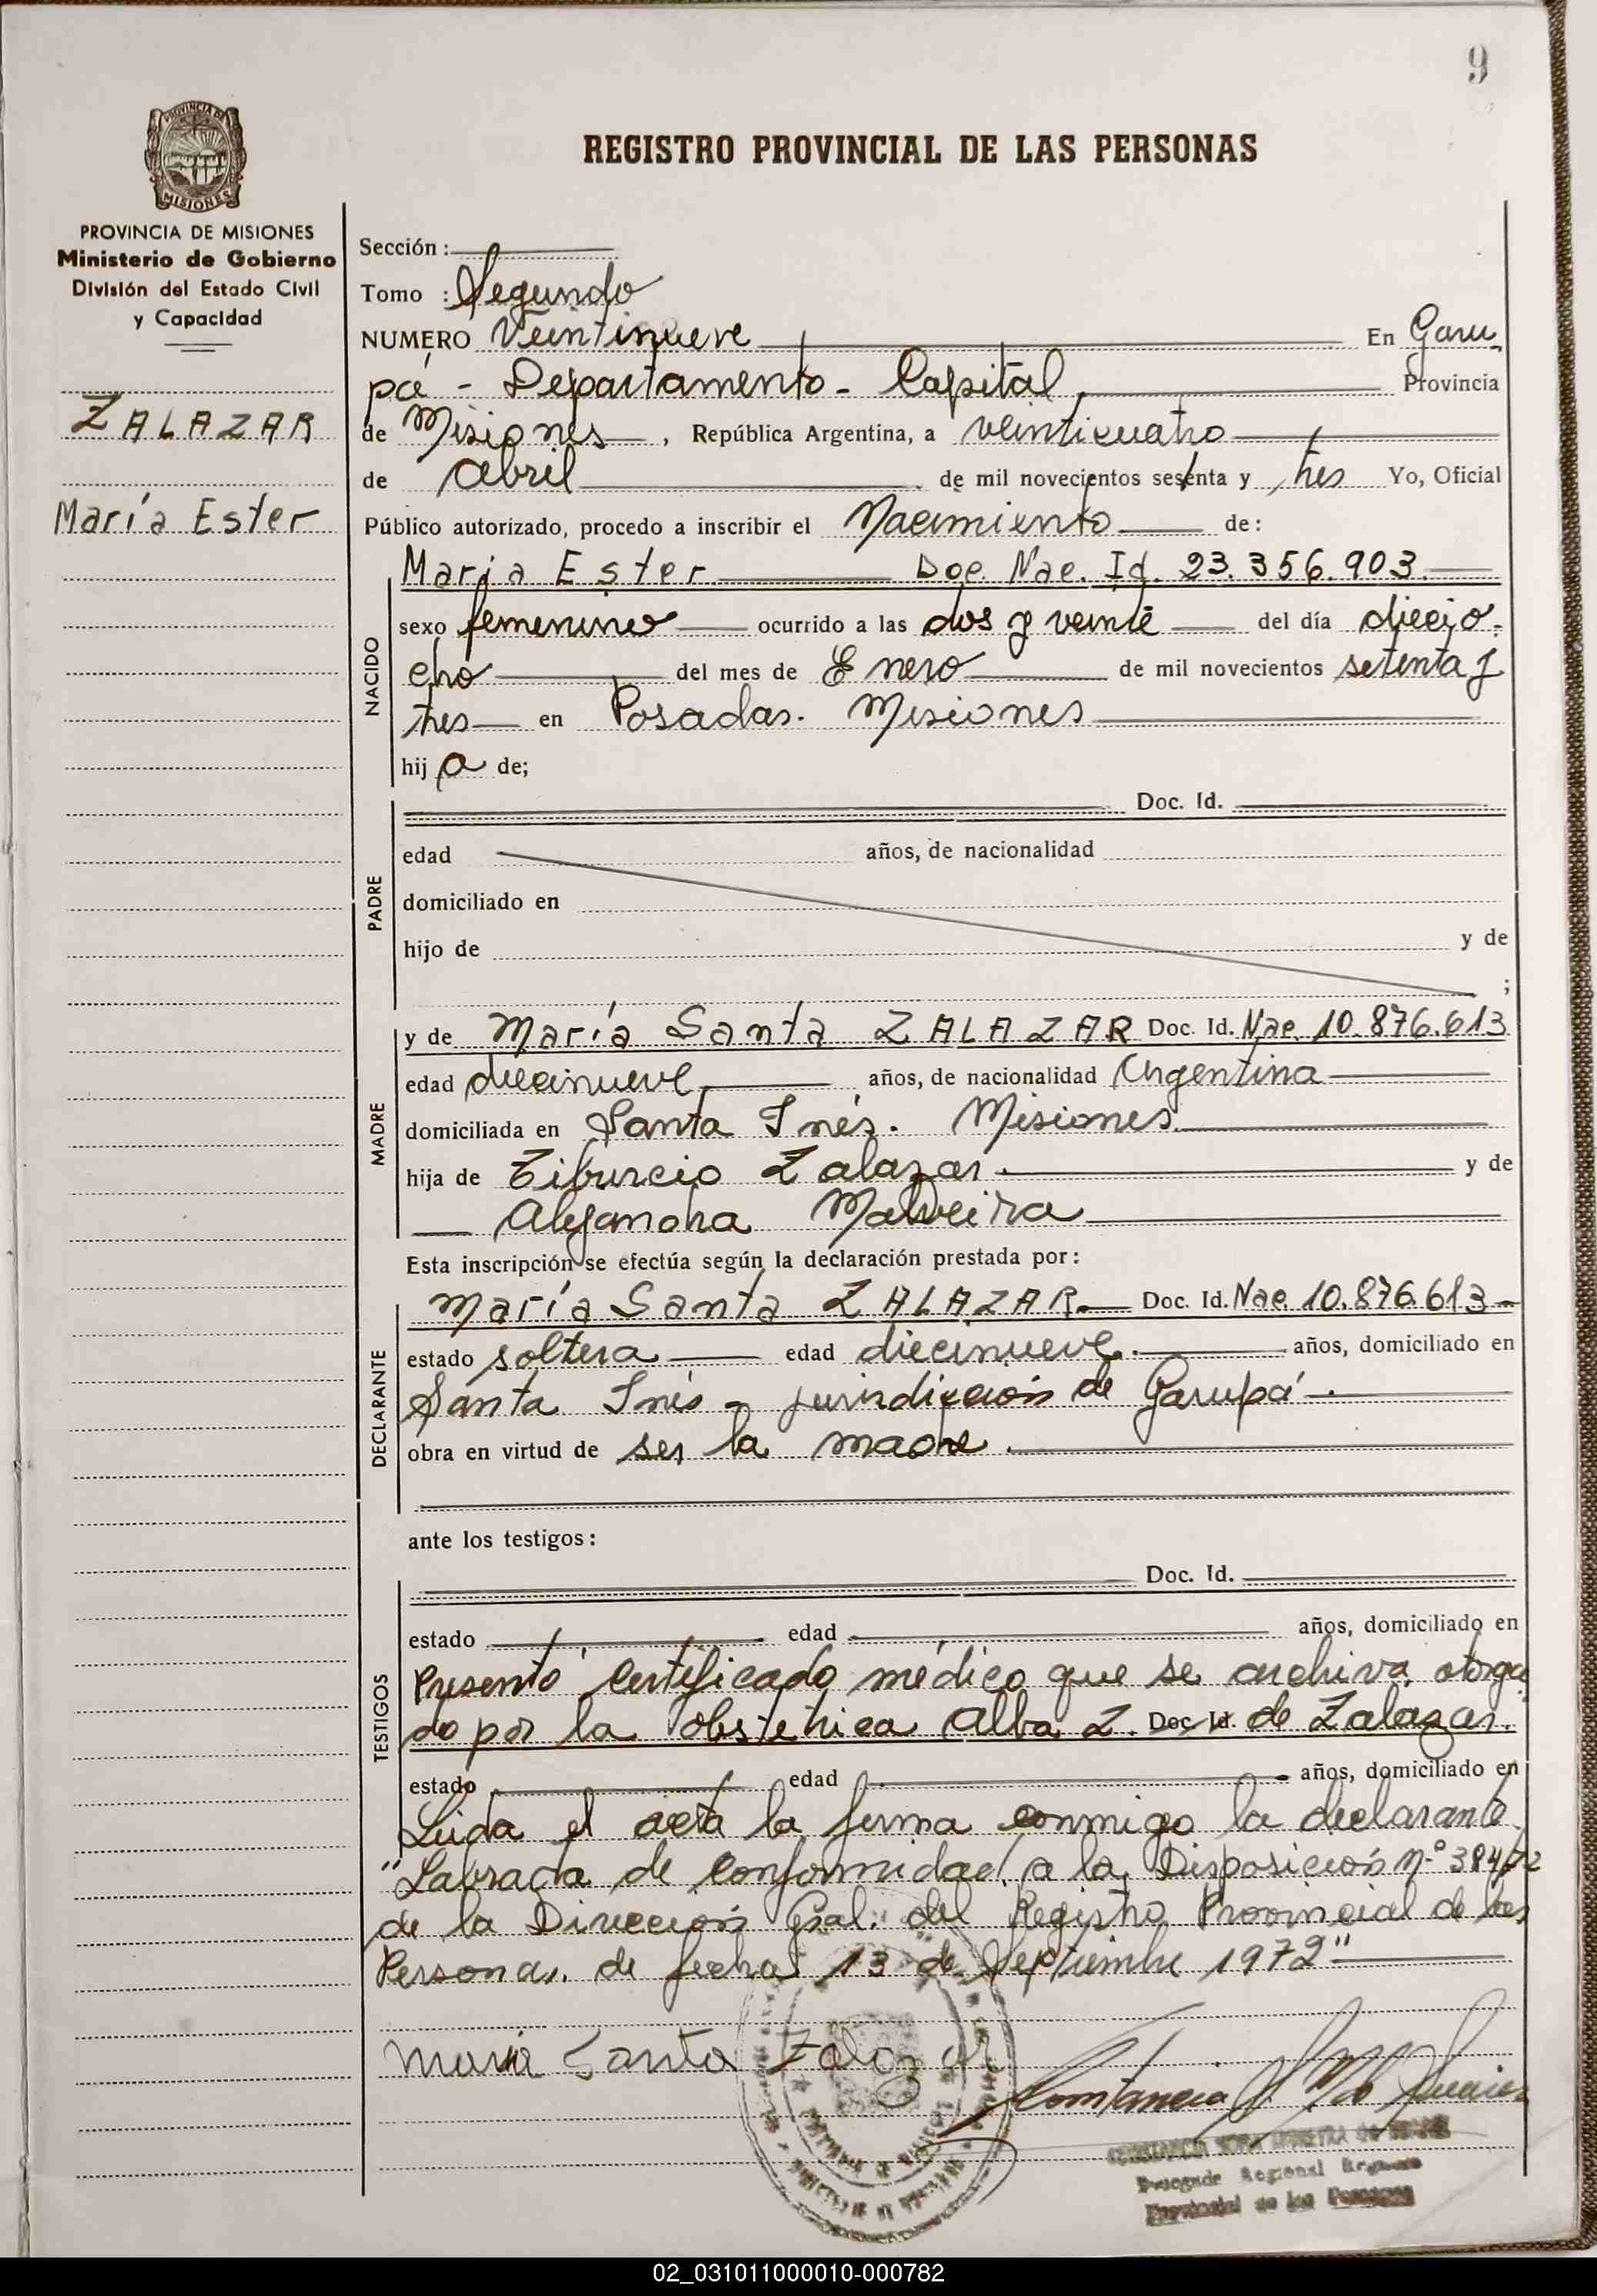 9
REGISTRO PROVINCIAL DE LAS PERSONAS
PROVINCIA DE
MISIONES
PROVINCIA DE MISIONES
Ministerio de Gobierno
División del Estado Civil
y Capacidad
ZALAZAR
María Ester
Sección :
Tomo : Segundo
NUMERO Veintinueve En Garu
pá - Departamento - Capital, Provincia
de Misiones , República Argentina, a veinticuatro
de abril de mil novecientos sesenta y tres Yo, Oficial
Público autorizado, procedo a inscribir el Nacimiento de:
NACIDO
María Ester Doc. Nac. Id. 23.356.903
sexo femenino ocurrido a las dos y veinte del día diecio-
cho del mes de Enero de mil novecientos setenta y
tres en Posadas. Misiones
hij a de;
PADRE
Doc. Id.
edad años, de nacionalidad
domiciliado en
hijo de y de
;
MADRE
y de María Santa ZALAZAR Doc. Id. Nac. 10.876.613
edad diecinueve años, de nacionalidad Argentina
domiciliada en Santa Inés. Misiones
hija de Tiburcio Zalazar. y de
Alejandra
Esta inscripción se efectúa según la declaración prestada por:
DECLARANTE
María Santa ZALAZAR Doc. Id. Nac. 10.876.613
estado soltera edad diecinueve. años, domiciliado en
Santa Inés - jurisdicción de Garupá.
obra en virtud de ser la madre.
ante los testigos:
TESTIGOS
Doc. Id.
estado edad años, domiciliado en
Presentó certificado médico que se archiva otorga
do por la obstetrica Alba Z. Doc. Id. de Zalazar.
estado edad años, domiciliado en
Leida el acta la firma conmigo la declarante
"Labrada de conformidad a la Disposición N.° 384/72
de la Dirección Gral. del Registro Provincial de las
Personas. de fecha 13 de Septiembre 1972"
María Santa Zalazar
Constancia
Regional
Provincial de las Personas
02_031011000010-000782